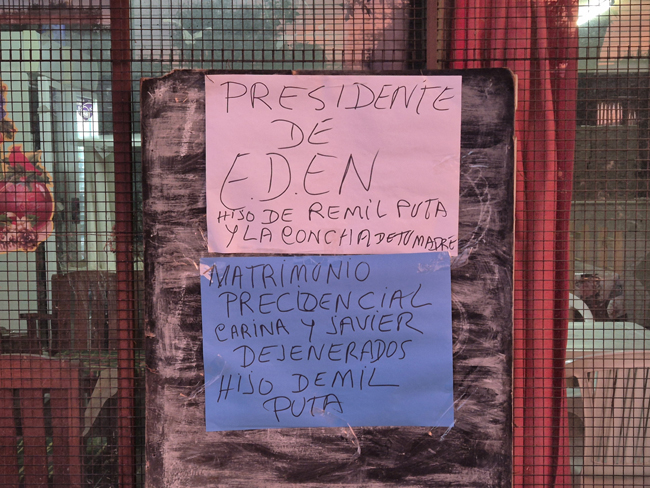 PRESIDENTE
DE
E.D.EN
HIJO DE REMIL PUTA
Y LA CONCHA DE TU MADRE
MATRIMONIO
PRECIDENCIAL
CARINA Y JAVIER
DEJENERADOS
HIJO DEMIL
PUTA